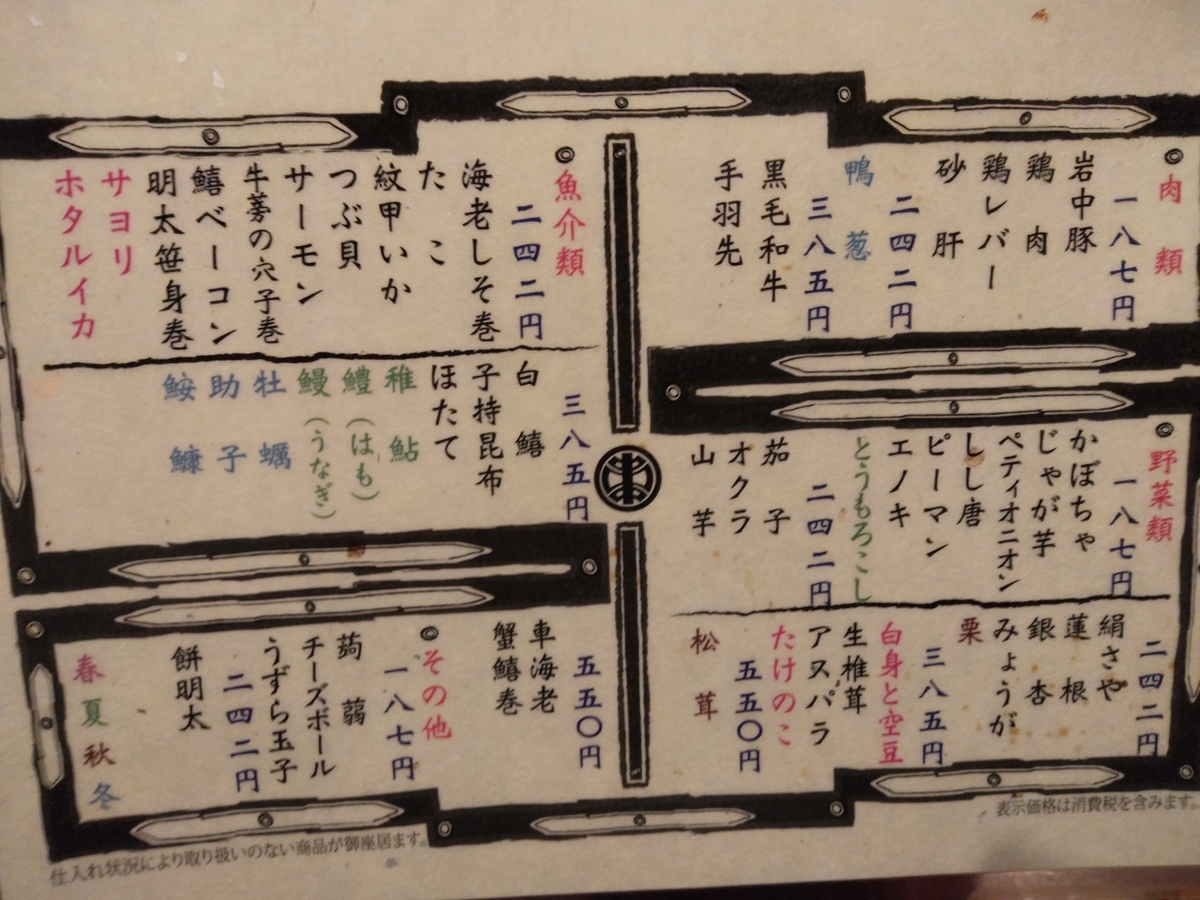 ◎肉類
一八七円
岩中豚
鶏肉
鶏レバー
砂肝
二四二円
鴨葱
三八五円
黒毛和牛
手羽先
◎野菜類
一八七円
かぼちゃ
じゃが芋
ペティオニオン
しし唐
ピーマン
エノキ
とうもろこし
二四二円
茄子
オクラ
山芋
二四二円
絹さや
蓮根
銀杏
みょうが
栗
三八五円
白身と空豆
生椎茸
アスパラ
たけのこ
五五〇円
松茸
◎魚介類
二四二円
海老しそ巻
たこ
紋甲いか
つぶ貝
サーモン
牛蒡の穴子巻
鱚ベーコン
明太笹身巻
サヨリ
ホタルイカ
三八五円
白鱚
子持昆布
ほたて
稚鮎
鱧(はも)
鰻(うなぎ)
牡蠣
助子
鮟鱇
五五〇円
車海老
蟹鱚巻
◎その他
一八七円
蒟蒻
チーズボール
うずら玉子
二四二円
餅明太
春夏秋冬
表示価格は消費税を含みます。
仕入れ状況により取り扱いのない商品が御座居ます。